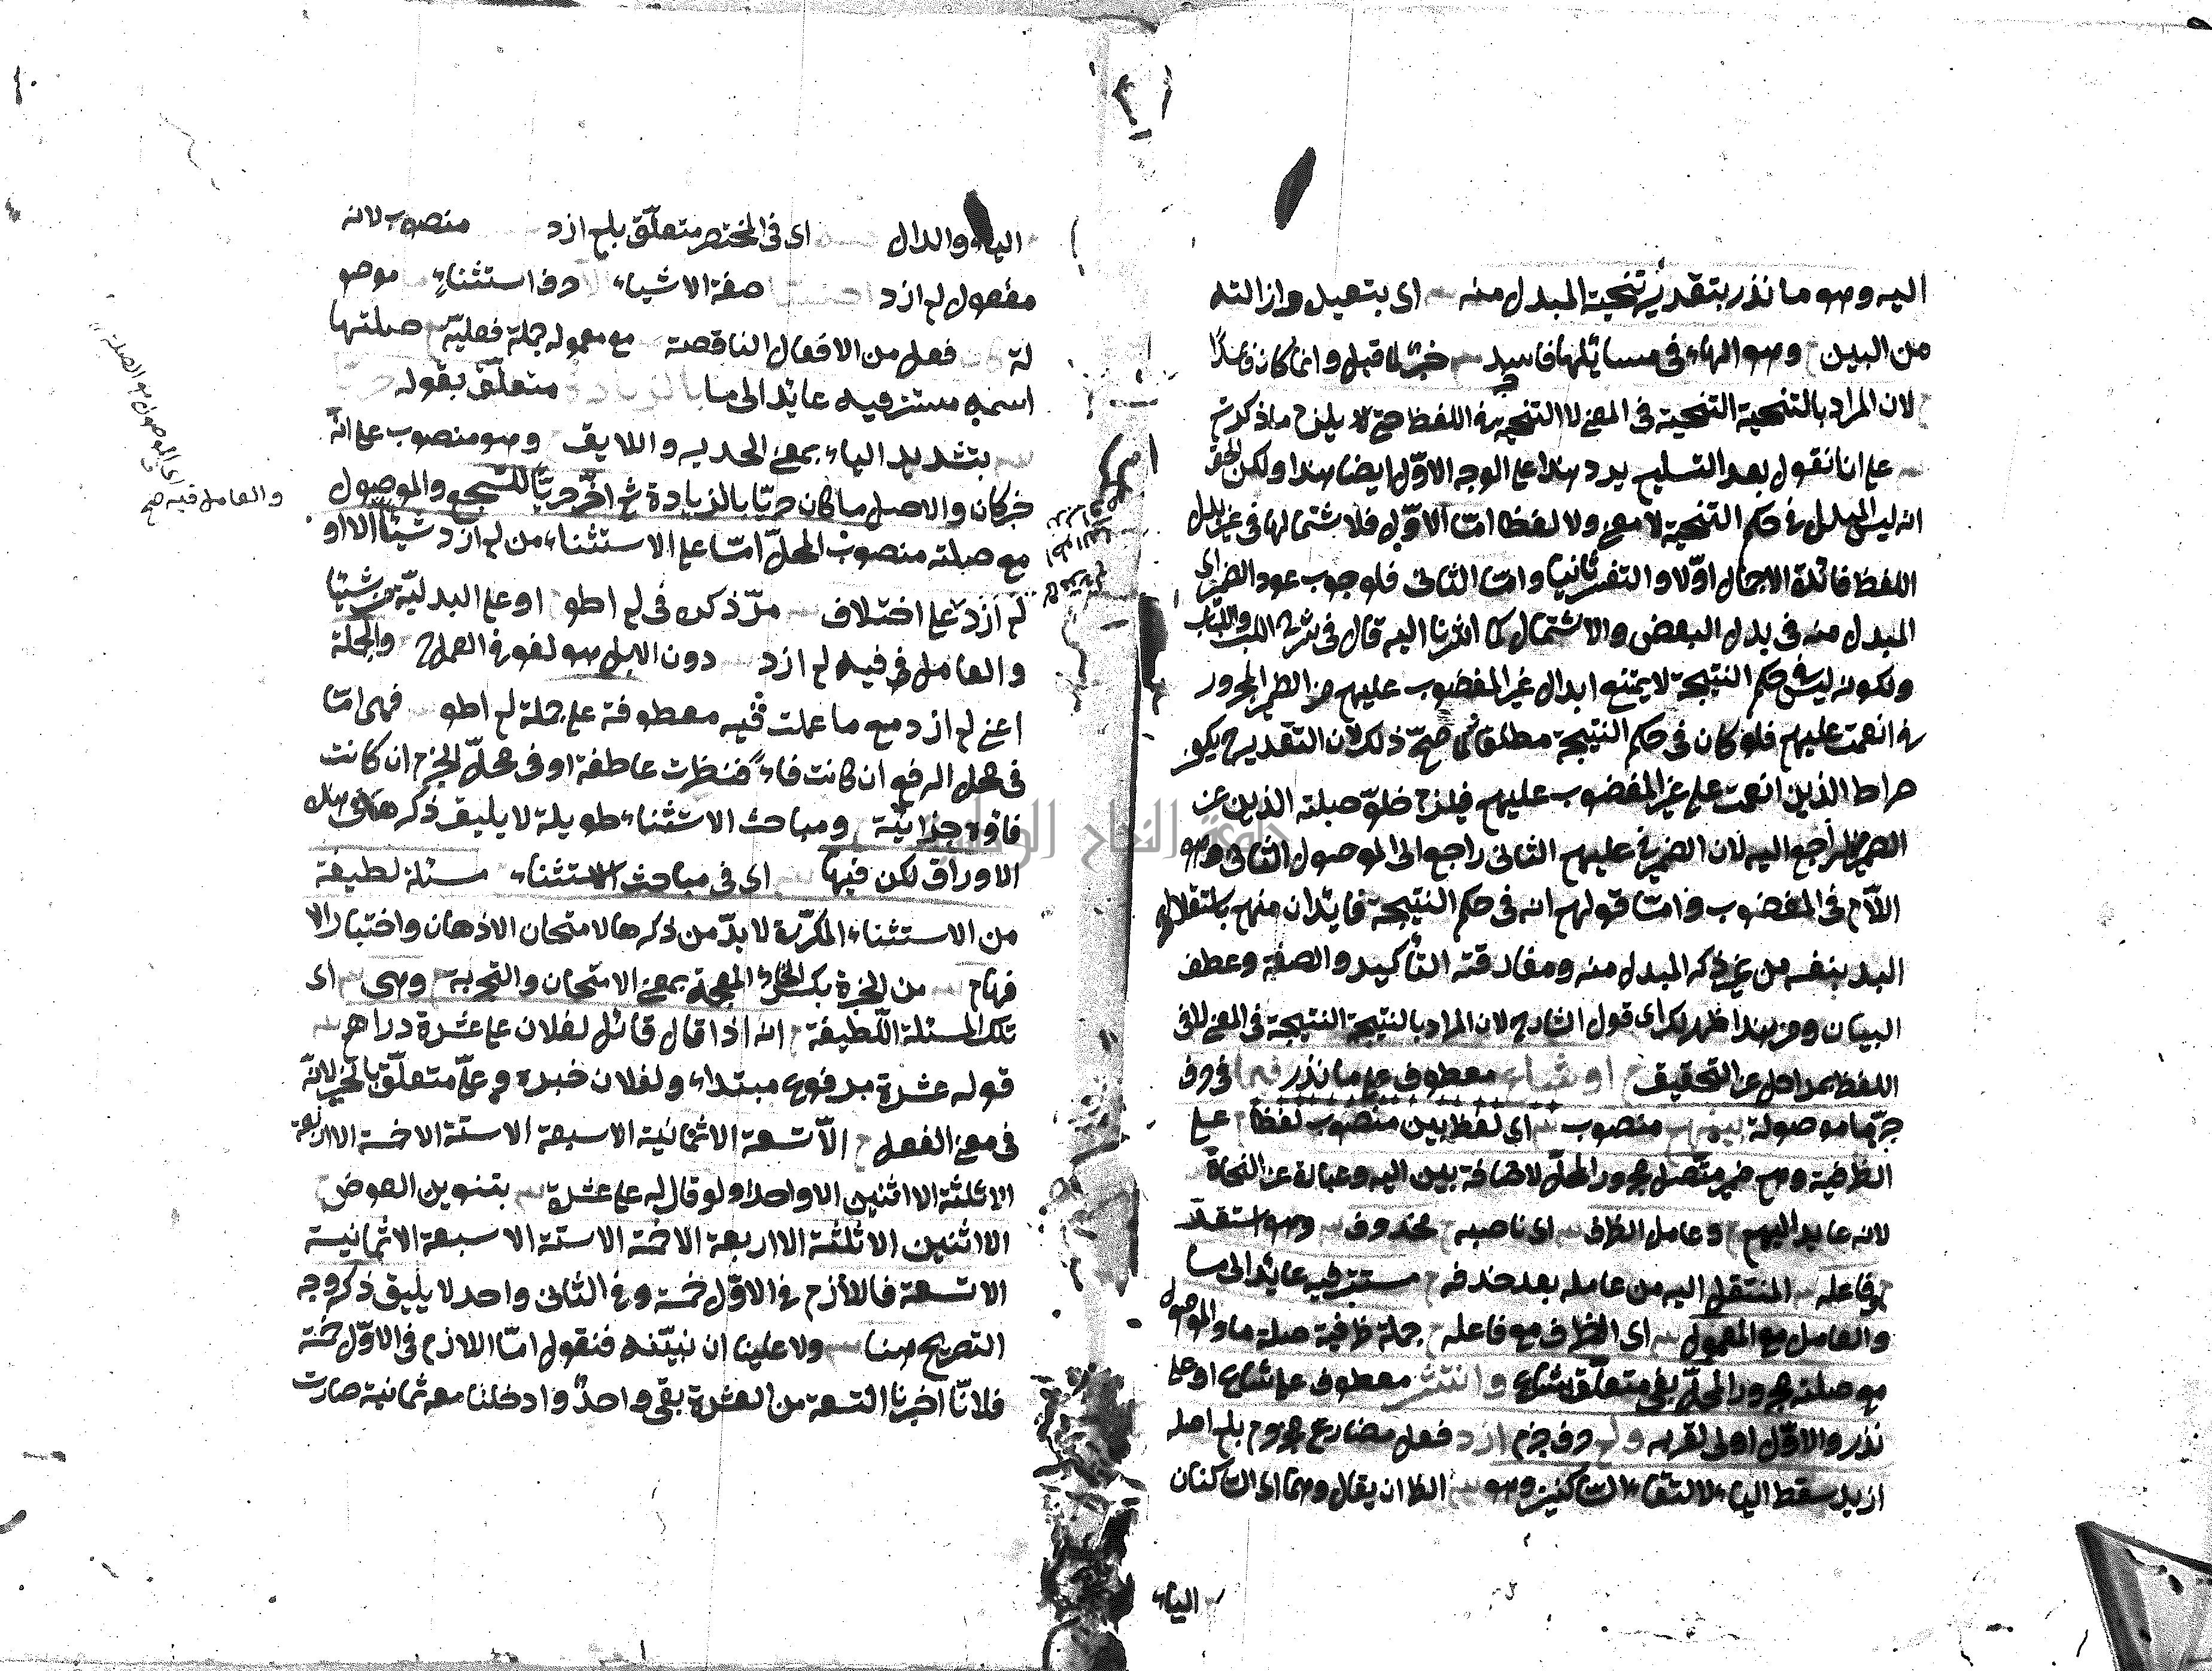 اليه وهو ما نذر بتقدير تنحية المبدل منه اى بتبعيل وازالته
من البين وهو الهاء فى مسائلها فاسد خبر لما قبل وانما كان فاسدًا
لان المراد بالتنحية التنحية فى المعنى لا التنحية فى اللفظ حتى لا يلزم ما ذكرتم
على انا نقول بعد التسليم يرد هذا على الوجه الاوّل ايضا هذا ولكن الحق
انه ليس المبدل فى حكم التنحية لا معنى ولا لفظا امّا الاوّل فلاشتمالها فى غير بدل
اللفظ فائدة الاجمال اوّلا والتفسير ثانيا وامّا الثانى فلوجوب عود الضمير الى
المبدل منه فى بدل البعض والاشتمال كما اشرنا اليه قال فى شرح اللب واللباب
ولكونه ليس فى حكم التنحية لا يمتنع ابدال غير المغضوب عليهم من الضمير المجرور
فى انعمت عليهم فلو كان فى حكم التنحية مطلقا لما صحّ ذلك لان التقدير ح يكون
صراط الذين انعمت على غير المغضوب عليهم فيلزم خلوّ صلة الذين عن
الضمير الراجع اليه لان الضمير فى عليهم الثانى راجع الى الموصول الثانى وهو
اللّام فى المغضوب وامّا قولهم انه فى حكم التنحية فايذان منهم باستقلال
البدل بنفسه من غير ذكر المبدل منه ومفارقته التأكيد والصفة وعطف
البيان ومن هذا ظهر لك اى قول الشارح لان المراد بالتنحية التنحية فى المعنى لا فى
اللفظ بمراحل عن التحقيق او شاع معطوف على ما نذر فيما فى حرف
جرّ ما موصولة بينهم منصوب اى لفظ بين منصوب لفظا على
الظرفية وهم ضمير متّصل مجرور المحلّ لاضافة بين اليه وعبارة عن النحاة
لانه عايد اليهم وعامل الظرف اى ناصبه محذوف وهو استقرّ
وفاعله المنتقل اليه من عامله بعد حذفه مستتر فيه عائد الى ما
والعامل مع المعمول اى الظرف مع فاعله جملة ظرفية صلة ما والموصول
مع صلته مجرور المحلّ بفى متعلّق بشاع وانتشر معطوف على شاع او على
نذر والاوّل اولى لقربه ولم حرف جزم ازد فعل مضارع مجزوم بلم اصله
ازيد سقط الياء لالتقاء السّاكنين وهو الظ ان يقال وهما اى السّاكنان
الياء
الياء والدال اى فى المختصر متعلّق بلم ازد منصوب لانه
مفعول لم ازد صفة الاشياء حرف استثناء موصو
لة فعل من الافعال الناقصة مع معموله جملة فعليّة صلتها
اسمه مستتر فيه عائد الى ما بالزيادة متعلّق بقوله حريّا
بتشديد الياء بمعنى الجدير واللايق وهو منصوب على انّه
خبر كان والاصل ما كان حريّا بالزيادة ثم اخّر حريّا للسّجع والموصول
مع صلته منصوب المحلّ امّا على الاستثناء من لم ازد شيئا الا او
لم ازد على اختلاف مرّ ذكره فى لم اطو او على البدليّة من شيئا
والعامل فى فيه لم ازد دون الا بل هو لغو فى العمل ح والجملة
اعنى لم ازد مع ما عملت فيه معطوفة على جملة لم اطو فهى امّا
فى محل الرفع ان كانت فاء فنظرت عاطفة او فى محلّ الجزم ان كانت
فاؤه جزائيّة ومباحث الاستثناء طويلة لا يليق ذكرها فى هذه
الاوراق لكن فيها اى فى مباحث الاستثناء مسئلة لطيفة
من الاستثناء المكرّرة لا بدّ من ذكرها لامتحان الاذهان واختبار الا
فهام من الخبرة بكسر الخاء المعجمة بمعنى الامتحان والتجربة وهى اى
تلك المسئلة اللّطيفة انه اذا قال قائل لفلان على عشرة دراهم
قوله عشرة مرفوع مبتداء ولفلان خبره وعلىّ متعلّق بالخبر لانّه
فى معنى الفعل الّا تسعة الا ثمانية الا سبعة الا ستة الا خمسة الا اربعة
الا ثلثة الا اثنين الا واحدا ولو قال له على عشرة بتنوين العوض
الا اثنين الا ثلثة الا اربعة الا خمسة الا ستة الا سبعة الا ثمانية
الا تسعة فاللازم فى الاوّل خمسة وفى الثانى واحد لا يليق ذكر وجه
التصريح هنا ولا علينا ان نبيّنه فنقول امّا اللازم فى الاوّل خمسة
فلانّا اخرجنا التسعة من العشرة بقى واحدٌ وادخلنا معه ثمانية صارت
والعامل فيه صح